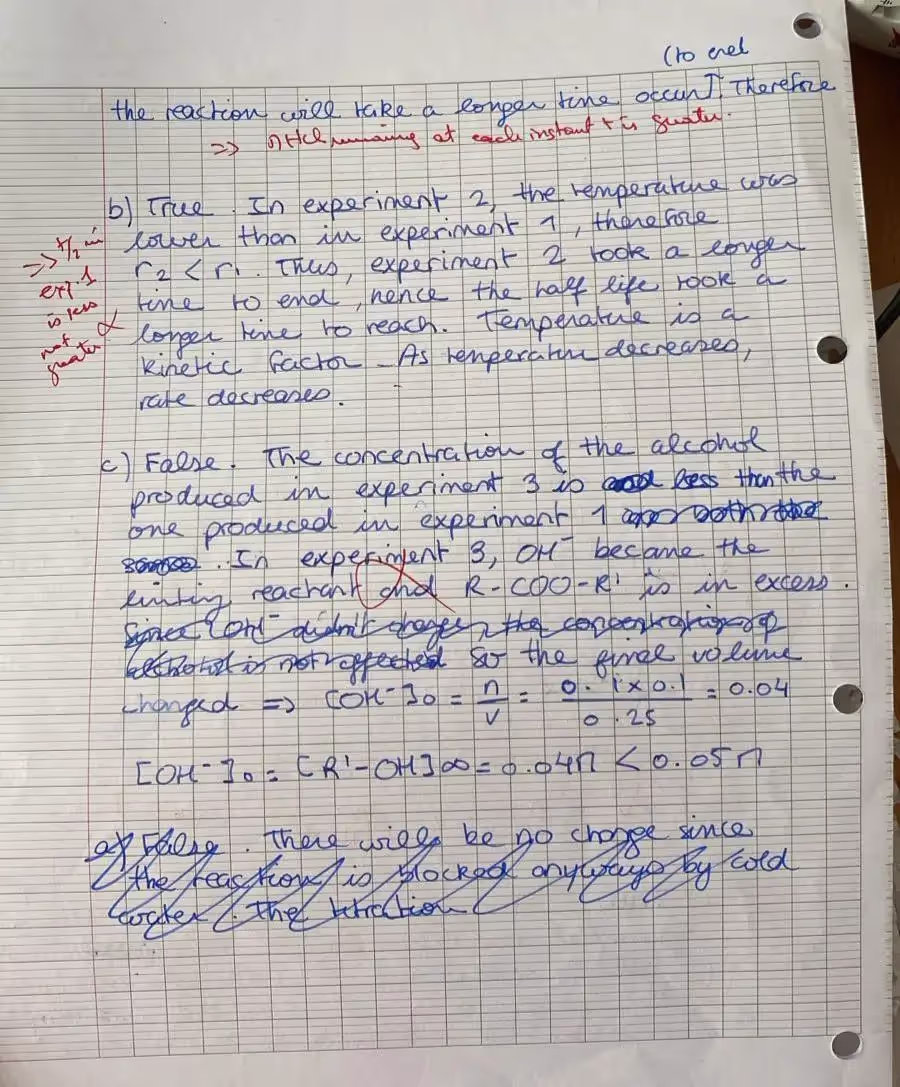 (to end
the reaction will take a longer time occur]. Therefore
=> n HCl remaining at each instant t is greater.
b) True. In experiment 2, the temperature was
lower than in experiment 1, therefore
r2 < r1. Thus, experiment 2 took a longer
time to end, hence the half life took a
longer time to reach. Temperature is a
kinetic factor - As temperature decreases,
rate decreases.
=> t1/2 in
exp.1
is less
not
greater
c) False. The concentration of the alcohol
produced in experiment 3 is less than the
one produced in experiment 1 are both the
same. In experiment 3, OH- became the
limiting reactant and R-COO-R' is in excess.
Since [OH- didn't change, the concentration of
alcohol is not affected so the final volume
changed => [OH-]0 = n/V = 0.1 x 0.1 / 0.25 = 0.04
[OH-]0 = [R'-OH]∞ = 0.04M < 0.05M
a) False. There will be no change since
the reaction is blocked anyways by cold
water. The titration